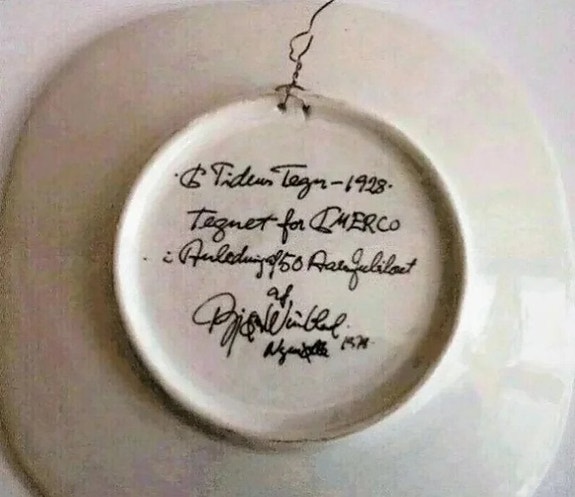 Tidens Tegn - 1928.
Tegnet for MERCO
i Anledning af 50 Aarsjubilæet
af
Bjørn Wiinblad.
1978.